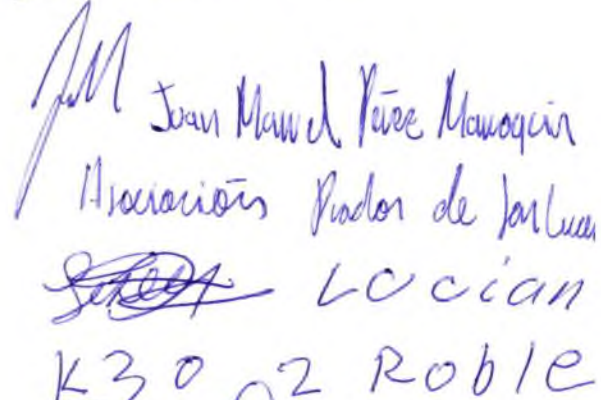 Juan Manuel Pérez
Asociación Prador de San Lucas
Lucian
K30 02 Roble